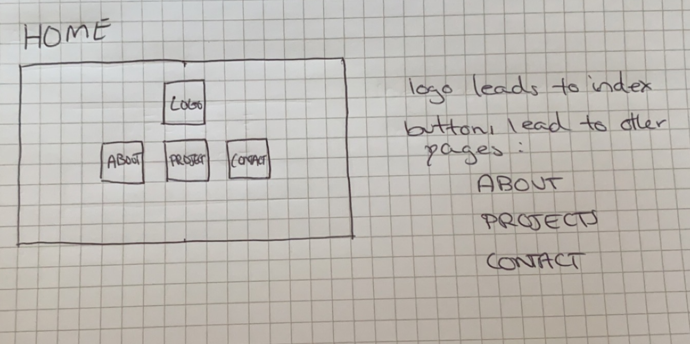 HOME
LOGO
ABOUT PROJECT CONTACT
logo leads to index
buttons lead to other
pages:
ABOUT
PROJECTS
CONTACT